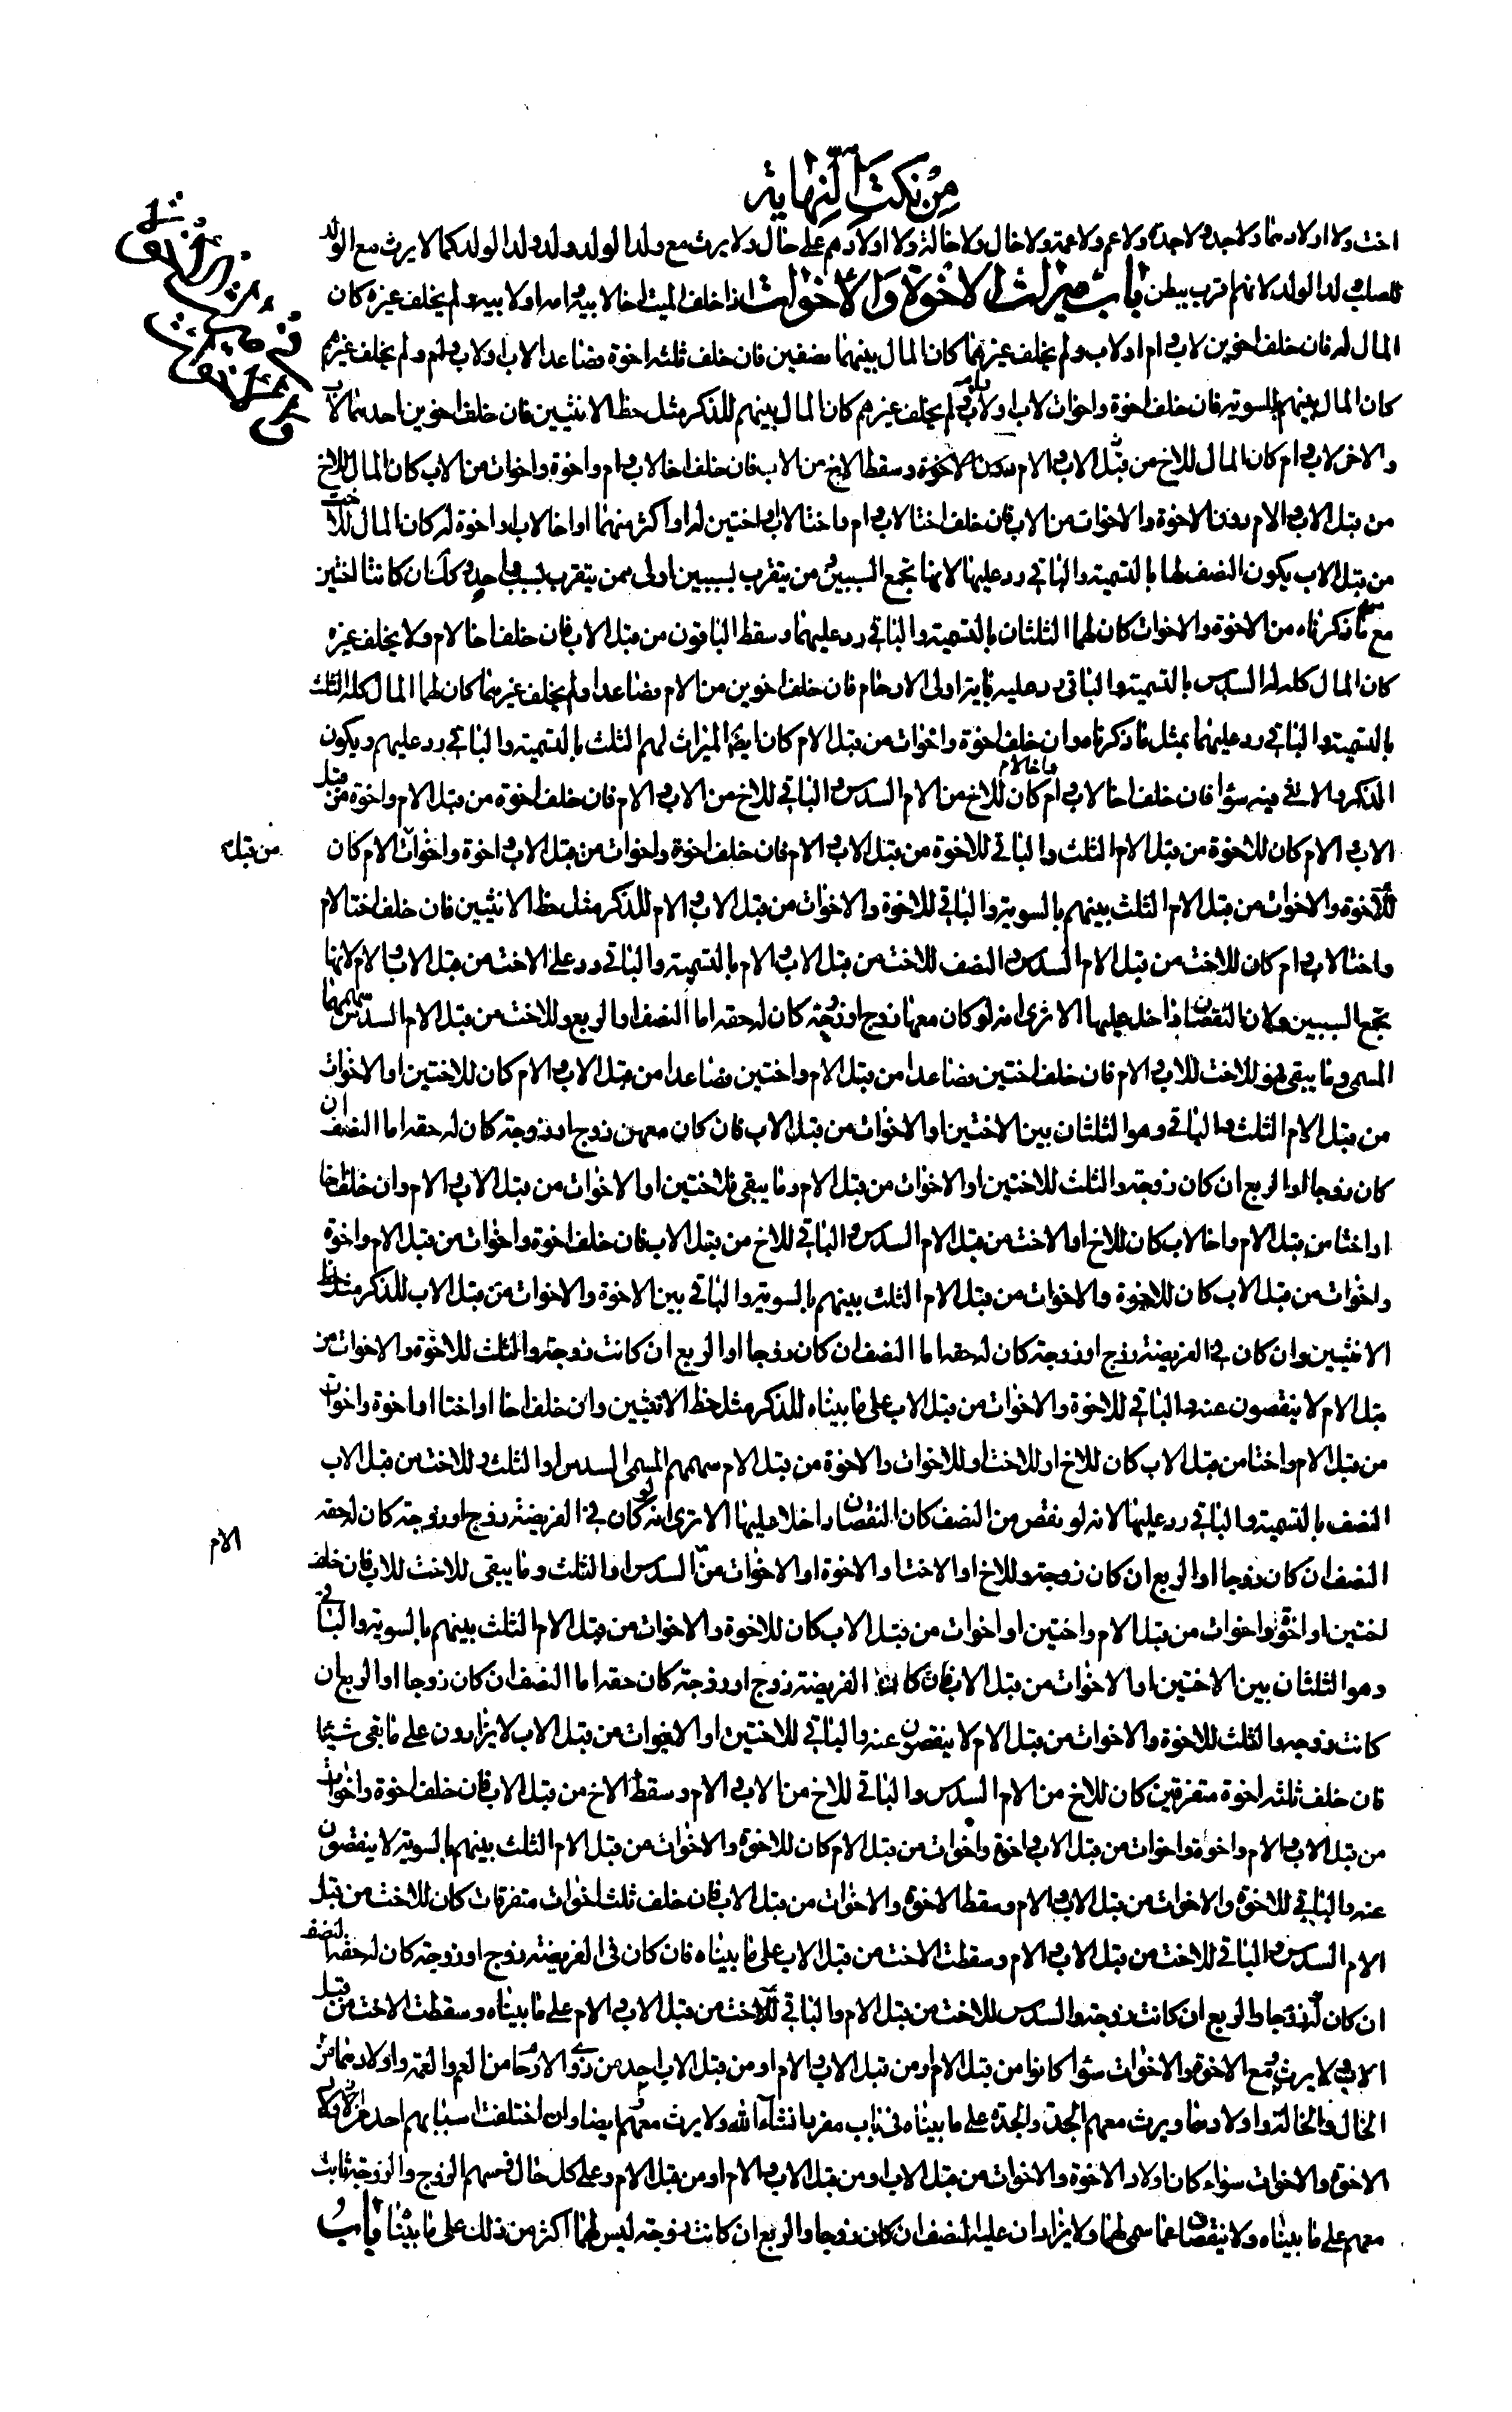 من نكت النهاية
اخت ولا اولادهما ولا جد ولا جدة ولا عم ولا عمة ولا خال ولا خالة ولا اولادهم على حال ولا يرث مع ولد الولد ولد ولد الولد كما لا يرث مع الولد
للصلب ولد الولد لانهم اقرب ببطن باب ميراث الاخوة والاخوات اذا خلف الميت اخا لابيه وامه او لابيه ولم يخلف غيره كان
المال له فان خلف اخوين لاب وام او لاب ولم يخلف غيرهما كان المال بينهما نصفين فان خلف ثلثه اخوة فصاعدا لاب او لاب وام ولم يخلف غيرهم
كان المال بينهم بالسويه فان خلف اخوة واخوات لاب او لاب وام ولم يخلف غيرهم كان المال بينهم للذكر مثل حظ الانثيين فان خلف اخوين احدهما لاب
والاخر لاب وام كان المال للاخ من قبل الاب والام دون الاخوة وسقط الاخ من الاب فان خلف اخا لاب وام واخوة واخوات من الاب كان المال للاخ
من قبل الاب والام دون الاخوة والاخوات من الاب فان خلف اختا لاب وام واختا لاب او اختين له او اكثر منهما او اخا لاب او اخوة له كان المال للاخت
من قبل الاب يكون النصف لها بالتسمية والباقي رد عليها لانها تجمع السببين ومن يتقرب بسببين اولى ممن يتقرب بسبب واحد وكذلك ان كانتا اختين
مع ما ذكرناه من الاخوة والاخوات كان لهما الثلثان بالتسمية والباقي رد عليهما وسقط الباقون من قبل الاب فان خلف اخا لام ولا يخلف غيره
كان المال كله له السدس بالتسمية والباقي رد عليه باية اولى الارحام فان خلف اخوين من الام فصاعدا ولم يخلف غيرهما كان لهما المال كله الثلث
بالتسمية والباقي رد عليهما بمثل ما ذكرناه وان خلف اخوة واخوات من قبل الام كان ايضا الميراث لهم الثلث بالتسمية والباقي رد عليهم ويكون
الذكر والانثى فيه سواء فان خلف اخا لاب وام واخا لام كان للاخ من الام السدس والباقي للاخ من الاب والام فان خلف اخوة من قبل الام واخوة من قبل
الاب والام كان للاخوة من قبل الام الثلث والباقي للاخوة من قبل الاب والام فان خلف اخوة واخوات من قبل الاب واخوة واخوات الام كان
من قبل
للاخوة والاخوات من قبل الام الثلث بينهم بالسوية والباقي للاخوة والاخوات من قبل الاب والام للذكر مثل حظ الانثيين فان خلف اختا لام
واختا لاب وام كان للاخت من قبل الام السدس والنصف للاخت من قبل الاب والام بالتسمية والباقي رد على الاخت من قبل الاب والام لانها
تجمع السببين ولان النقصان داخل عليها الا ترى انه لو كان معها زوج او زوجة كان له حقه اما النصف او الربع وللاخت من قبل الام السدس سهمها
المسمى وما يبقى فهو للاخت للاب والام فان خلف اختين فصاعدا من قبل الام واختين فصاعدا من قبل الاب والام كان للاختين او الاخوات
من قبل الام الثلث والباقي وهو الثلثان بين الاختين او الاخوات من قبل الاب فان كان معهن زوج او زوجة كان له حقه اما النصف ان
كان زوجا او الربع ان كان زوجة والثلث للاختين او الاخوات من قبل الام وما يبقى فللاختين او الاخوات من قبل الاب والام وان خلف اخا
او اختا من قبل الام واخا لاب كان للاخ او الاخت من قبل الام السدس والباقي للاخ من قبل الاب فان خلف اخوة واخوات من قبل الام واخوة
واخوات من قبل الاب كان للاخوة والاخوات من قبل الام الثلث بينهم بالسوية والباقي بين الاخوة والاخوات من قبل الاب للذكر مثل حظ
الانثيين وان كان في الفريضة زوج او زوجة كان له حقه اما النصف ان كان زوجا او الربع ان كانت زوجة والثلث للاخوة والاخوات من
قبل الام لا ينقصون عنه والباقي للاخوة والاخوات من قبل الاب على ما بيناه للذكر مثل حظ الانثيين وان خلف اخا او اختا او اخوة واخوات
من قبل الام واختا من قبل الاب كان للاخ او للاخت او للاخوات والاخوة من قبل الام سهمهم المسمى السدس او الثلث وللاخت من قبل الاب
النصف بالتسمية والباقي رد عليها لانه لو نقص من النصف كان النقصان داخلا عليها الا ترى انه لو كان في الفريضة زوج او زوجة كان له حقه
النصف ان كان زوجا او الربع ان كان زوجة وللاخ او الاخت او الاخوة او الاخوات من السدس او الثلث وما يبقى للاخت للاب فان خلف
الام
اختين او اخوة واخوات من قبل الام واختين او اخوات من قبل الاب كان للاخوة والاخوات من قبل الام الثلث بينهم بالسوية والباقي
وهو الثلثان بين الاختين او الاخوات من قبل الاب فان كان في الفريضة زوج او زوجة كان حقه اما النصف ان كان زوجا او الربع ان
كانت زوجه والثلث للاخوة والاخوات من قبل الام لا ينقصون عنه والباقي للاختين او الاخوات من قبل الاب لا يزادون على ما بقى شيئا
فان خلف ثلثه اخوة متفرقين كان للاخ من الام السدس والباقي للاخ من الاب والام وسقط الاخ من قبل الاب فان خلف اخوة واخوات
من قبل الاب والام واخوة واخوات من قبل الاب واخوة واخوات من قبل الام كان للاخوة والاخوات من قبل الام الثلث بينهم بالسوية لا ينقصون
عنه والباقي للاخوة والاخوات من قبل الاب والام وسقط الاخوة والاخوات من قبل الاب فان خلف ثلث اخوات متفرقات كان للاخت من قبل
الام السدس والباقي للاخت من قبل الاب والام وسقطت الاخت من قبل الاب على ما بيناه فان كان في الفريضة زوج او زوجة كان له حقه النصف
ان كان زوجا والربع ان كانت زوجة والسدس للاخت من قبل الام والباقي للاخت من قبل الاب والام على ما بيناه وسقطت الاخت من قبل
الاب ولا يرث مع الاخوة والاخوات سواء كانوا من قبل الام او من قبل الاب والام او من قبل الاب احد من ذوي الارحام من العم والعمه واولادهما من
الخال والخالة واولادهما ويرث معهم الجد والجدة على ما بيناه في باب مفرد انشاء الله ولا يرث معهم ايضا وان اختلفت اسبابهم احد من اولاد
الاخوة والاخوات سواء كان اولاد الاخوة والاخوات من قبل الاب او من قبل الاب والام او من قبل الام وعلى كل حال فسهم الزوج والزوجة ثابت
معهم على ما بيناه ولا ينقصان عما سمى لهما ولا يزادان عليه النصف ان كان زوجا والربع ان كانت زوجة ليس لهما اكثر من ذلك على ما بيناه باب